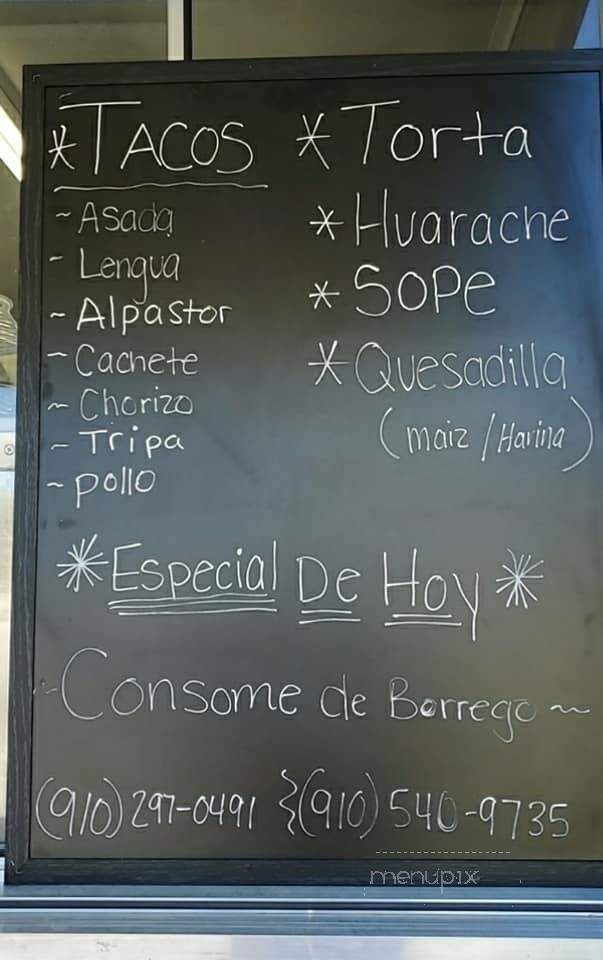 *TACOS
~ Asada
~ Lengua
~ Alpastor
~ Cachete
~ Chorizo
~ Tripa
~ pollo
* Torta
* Huarache
* SOPE
* Quesadilla
(maiz / Harina)
* Especial De Hoy *
~ Consome de Borrego ~
(910) 297-0491 } (910) 540-9735
menupix